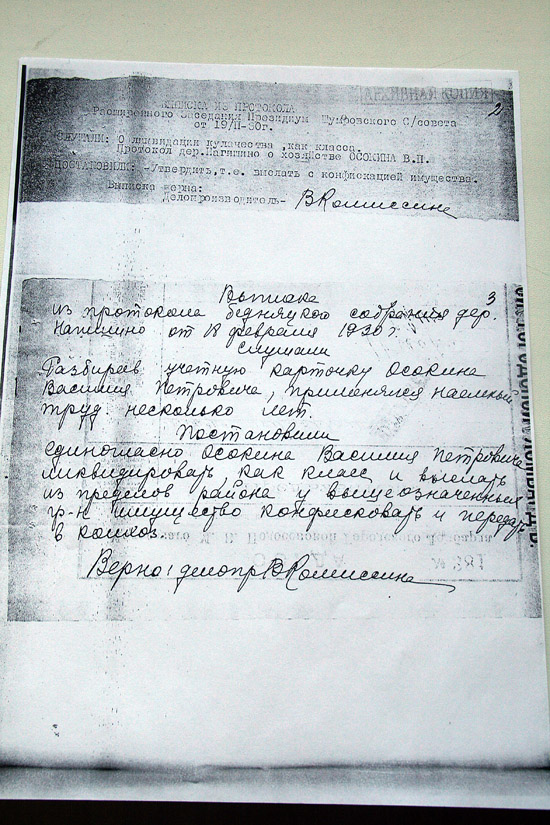 2
ВЫПИСКА ИЗ ПРОТОКОЛА
Расширенного Заседания Президиум Шумровского С/совета
от 19/II-30г.
СЛУШАЛИ: О ликвидации кулачества ,как класса.
Протокол дер. о хозяйстве ОСОКИНА В.П.
ПОСТАНОВИЛИ: -/твердить,т.е. выслать с конфискацией имущества.
Выписка верна:
делопроизводитель-
3
Выписка
из протокола бедняцкого собрания дер.
от 18 февраля 1930 г.
Слушали
Разбираев учетную карточку Осокина
Василия Петровича, применялся наемный
труд несколько лет.
Постановили
единогласно Осокина Василия Петровича
ликвидировать как класс и выслать
из пределов района у вышеозначенный
гр-н имущество конфисковать и передать
в колхоз.
Верно: делопр